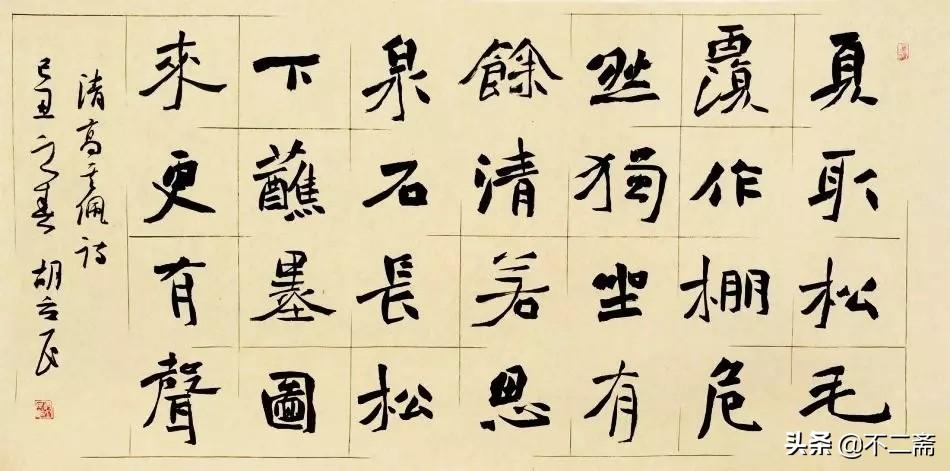 夏取松毛
覆作棚危
然獨坐有
餘清若思
泉石長松
下蘸墨圖
來更有聲
清高其佩詩
己丑之春 胡
头条 @不二斋